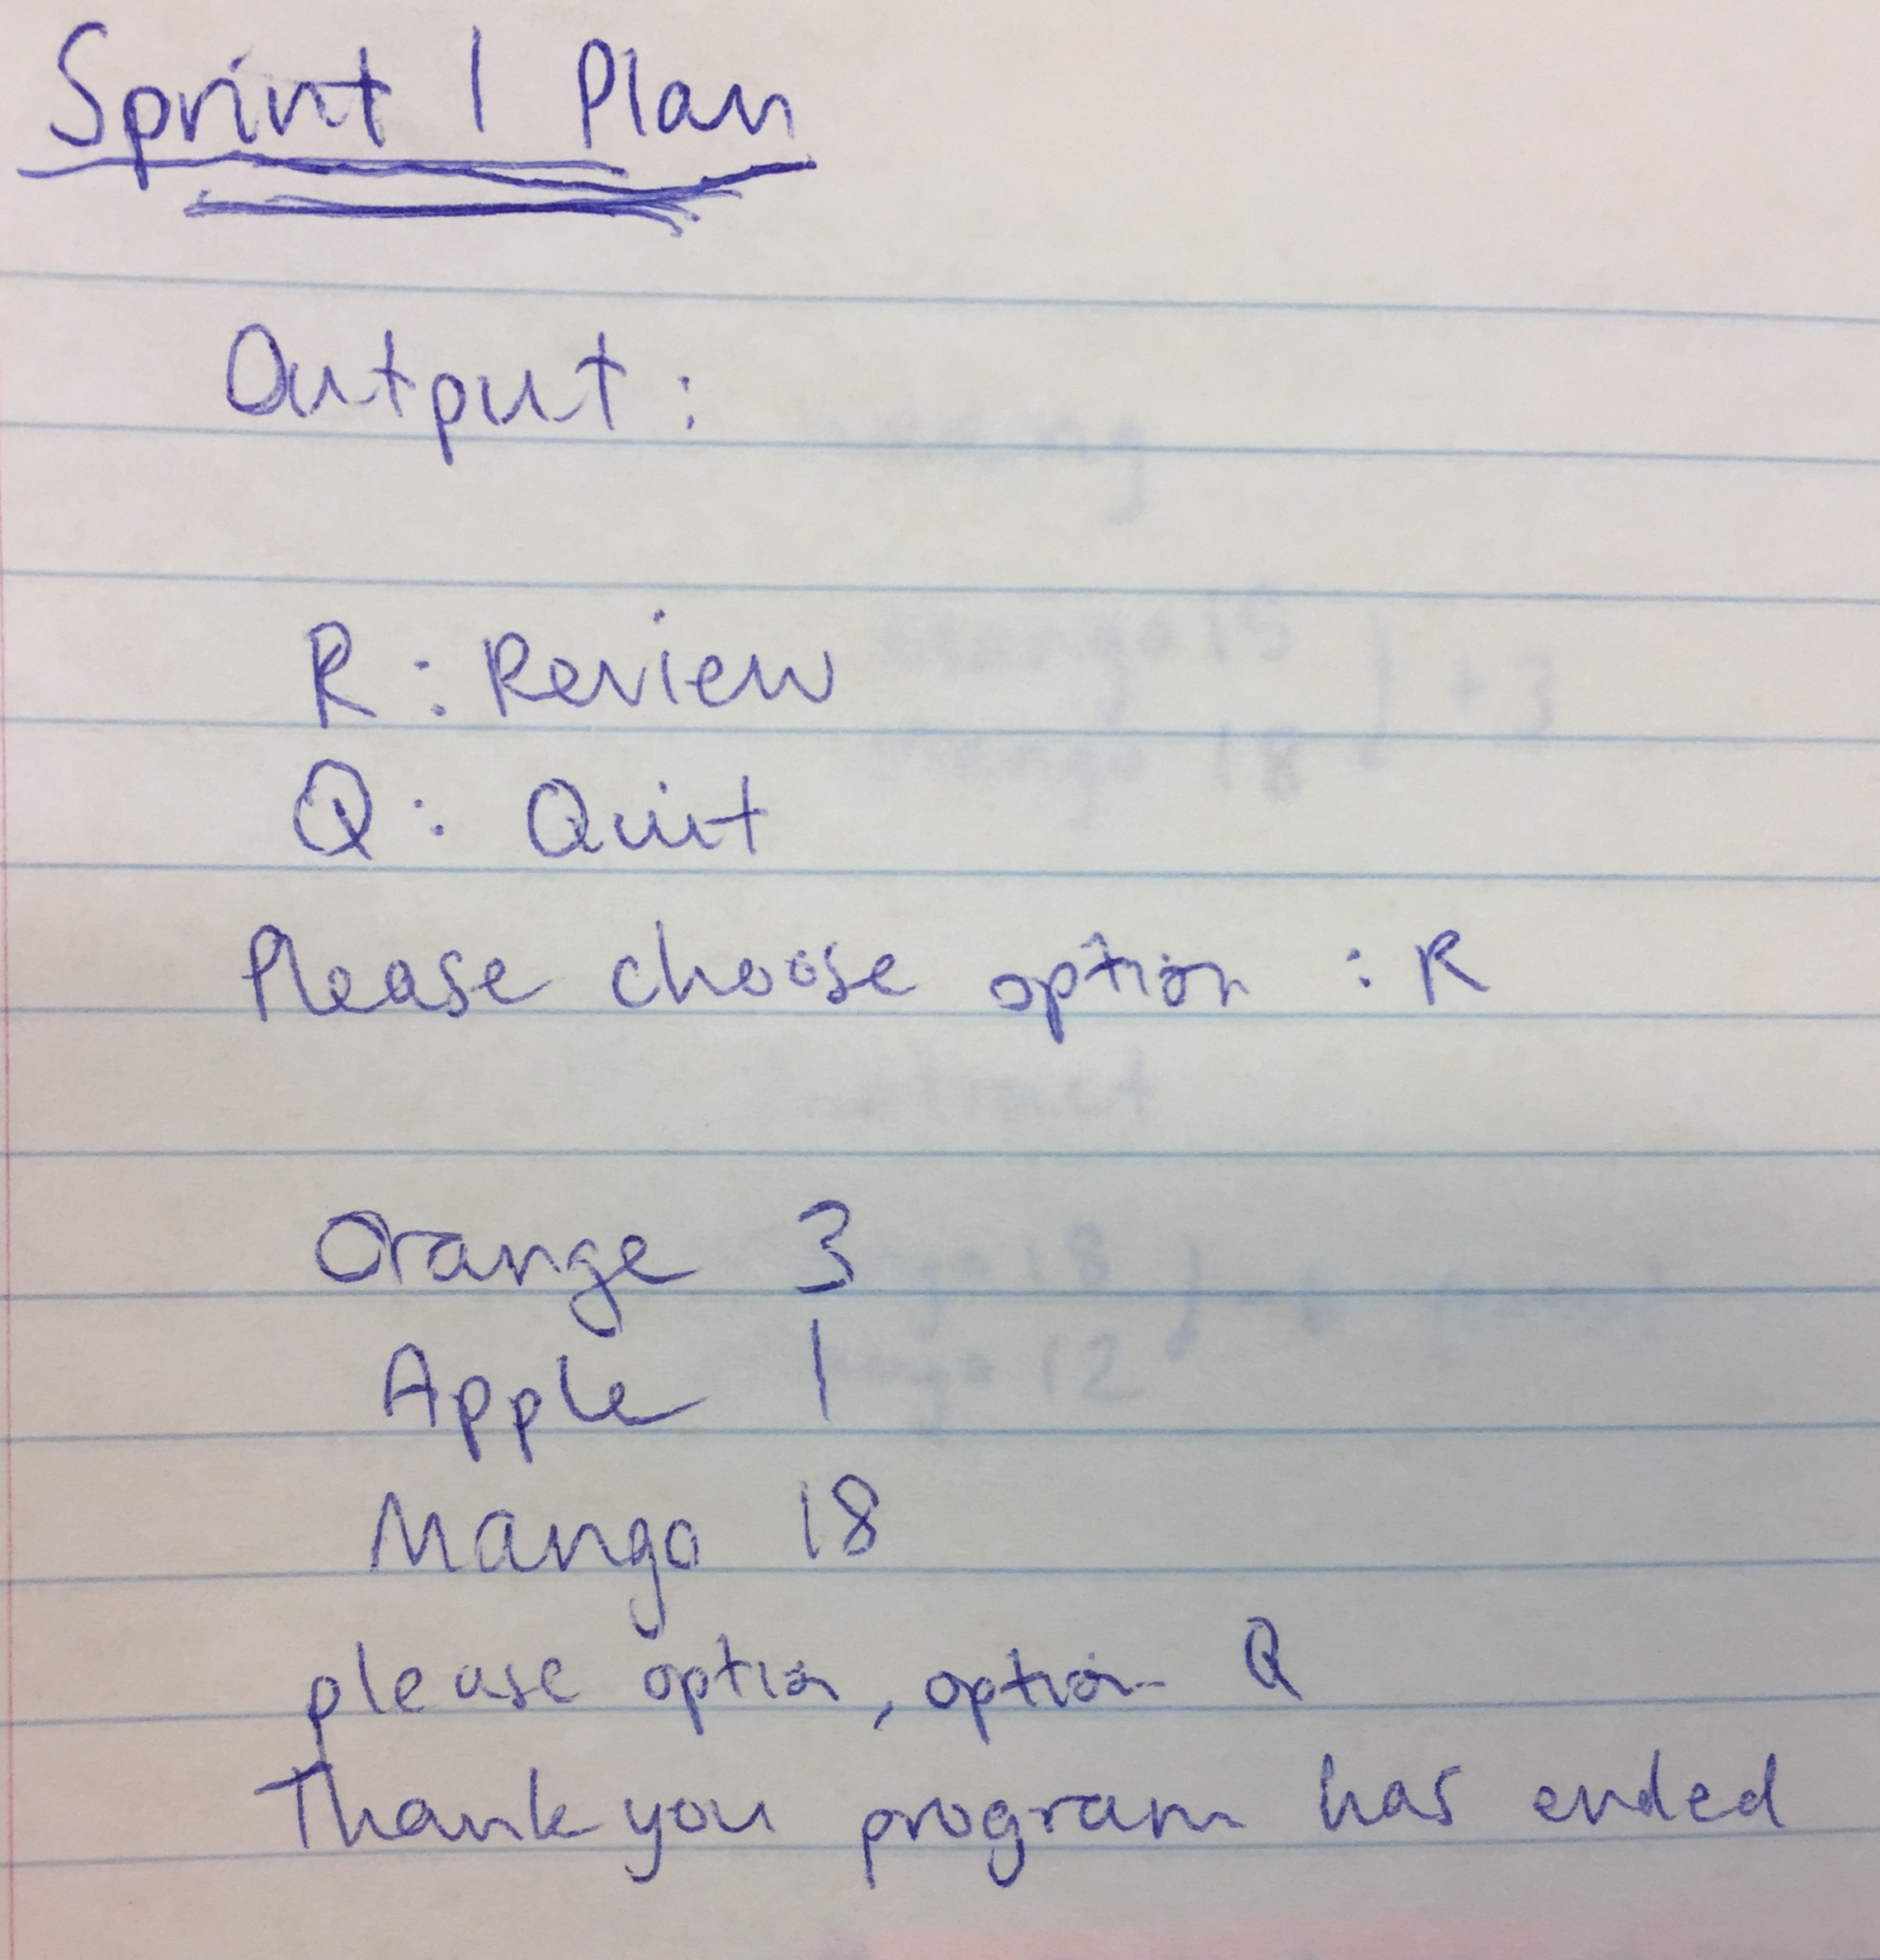 Sprint 1 Plan
Output:
R: Review
Q: Quit
Please choose option : R
Orange 3
Apple 1
Mango 18
please option, option Q
Thank you program has ended